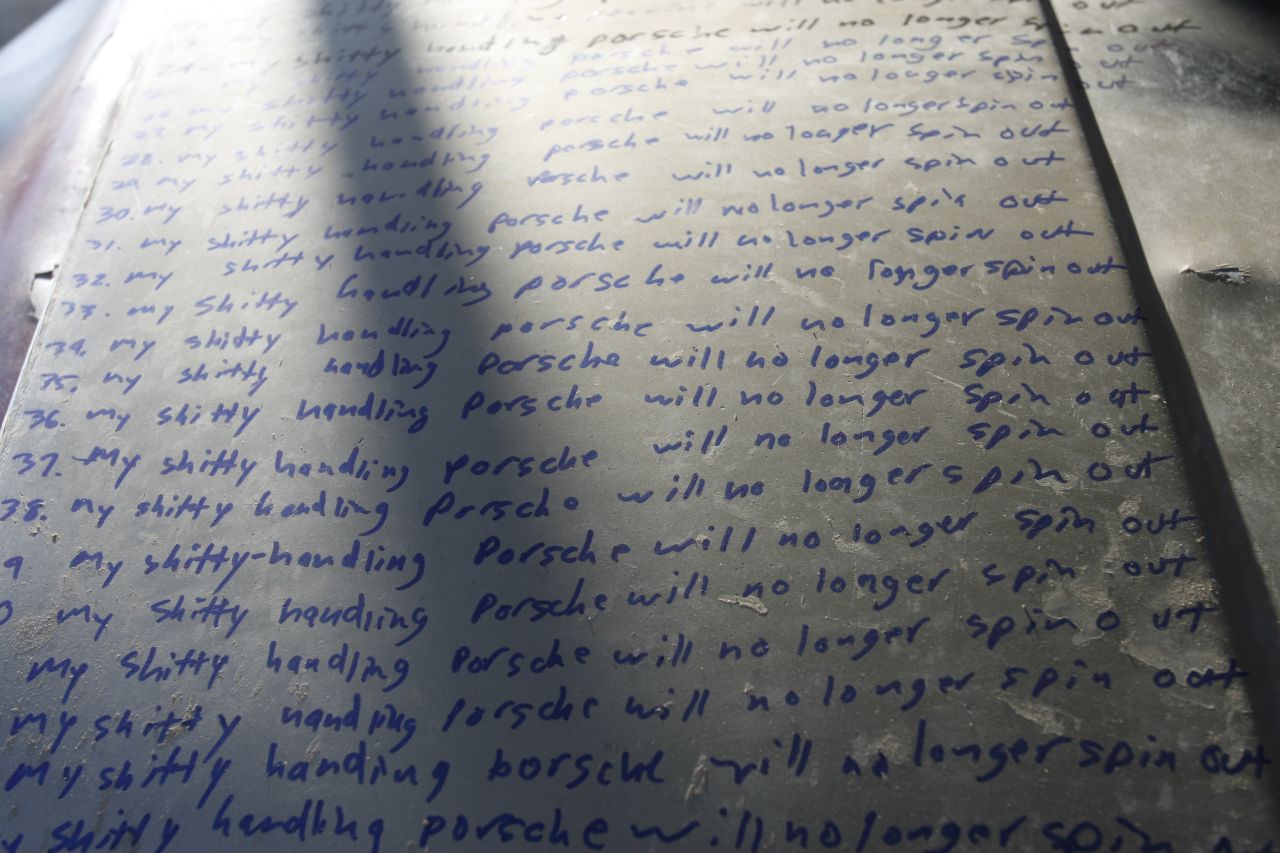 my shitty handling porsche will no longer spin out
my shitty handling porsche will no longer spin out
my shitty handling porsche will no longer spin out
my shitty handling porsche will no longer spin out
27. my shitty handling porsche will no longer spin out
28. my shitty handling porsche will no longer spin out
29. my shitty handling porsche will no longer spin out
30. my shitty handling porsche will no longer spin out
31. my shitty handling porsche will no longer spin out
32. my shitty handling porsche will no longer spin out
33. my shitty handling porsche will no longer spin out
34. my shitty handling porsche will no longer spin out
35. my shitty handling porsche will no longer spin out
36. my shitty handling Porsche will no longer spin out
37. My shitty handling porsche will no longer spin out
38. my shitty handling Porsche will no longer spin out
9. my shitty-handling Porsche will no longer spin out
0 my shitty handling Porsche will no longer spin out
My shitty handling Porsche will no longer spin out
my shitty handling Porsche will no longer spin out
My shitty handling borsche will no longer spin out
y shitty handling porsche will no longer spin out